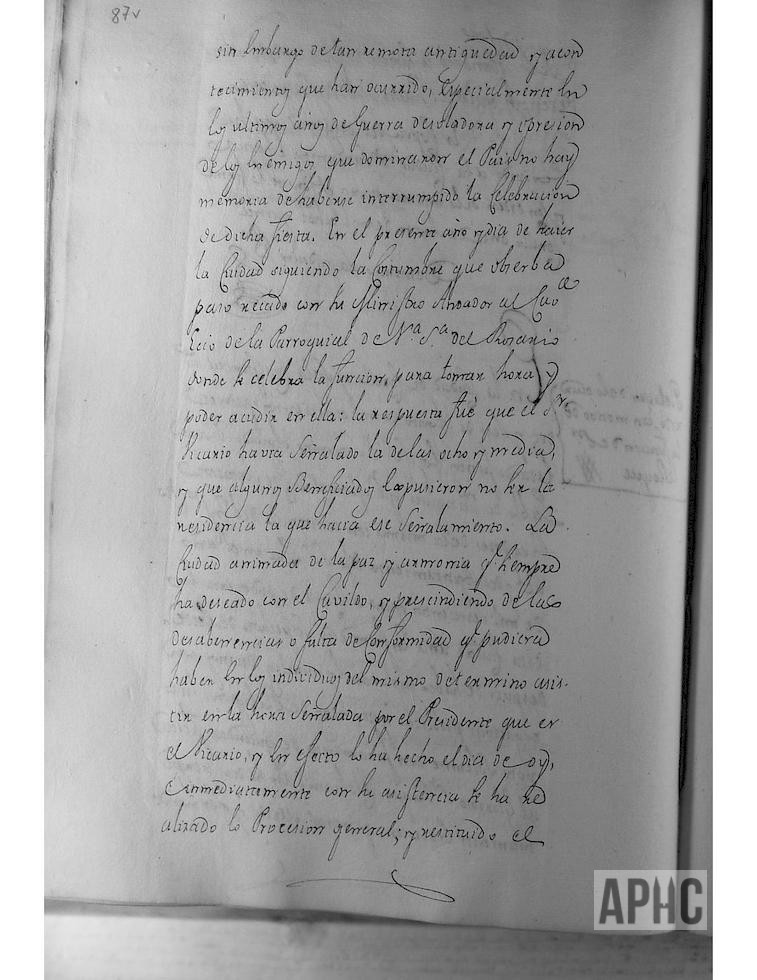 87v
sin embargo de tan remota antiguedad y acon
tecimientos que han ocurrido, especialmente en
los ultimos años de Guerra desoladora y opresion
de los enemigos que dominaron el Pais no hay
memoria de haberse interrumpido la Celebracion
de dicha fiesta. En el presente año y dia de haier
la Ciudad siguiendo la Costumbre que oberba
paso recado con su Ministro Andador al Cav.ᵈᵒ
Ecco de la Parroquial de N.ª S.ª del Rosario
donde se celebra la funcion, para tomar hora y
poder acudir en ella: la respuesta fué que el S.ʳ
Vicario havia Señalado la de las ocho y media,
y que algunos Beneficiados expusieron no ser la
residencia la que hacia ese Señalamiento. La
Ciudad animada de la paz y armonia q.ᵉ siempre
ha deseado con el Cavildo, y prescindiendo de las
desabenencias o falta de Conformidad q.ᵉ pudiera
haber en los individuos del mismo determino asis-
tir en la hora Señalada por el Presidente que es
el Vicario, y en efecto lo ha hecho el dia de oy,
e inmediatamente con su asistencia se ha re
alizado la Procesion general; y restituido el
APHC